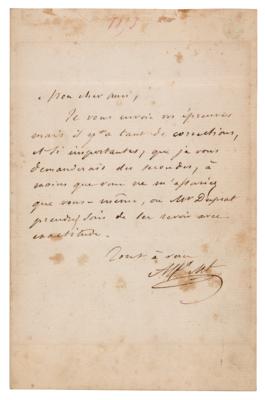 Mon cher ami,
Je vous envoie les épreuves
mais il y a tant de corrections,
et si importantes, que je vous
demanderais des secondes, à
moins que vous ne m'assuriez
que vous-même, ou Mr Duprat
prendrez soin de les revoir avec
exactitude.
Tout à vous